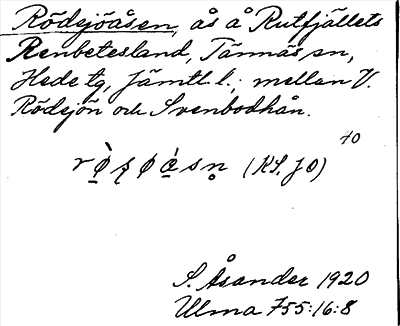 Rödsjöåsen, ås å Rutfjällets
Renbetesland, Tännäs sn,
Hede tg, Jämtl. l.; mellan V.
Rödsjön och Svenbodhån.
40
S. Åsander 1920
Ulma 755:16:8